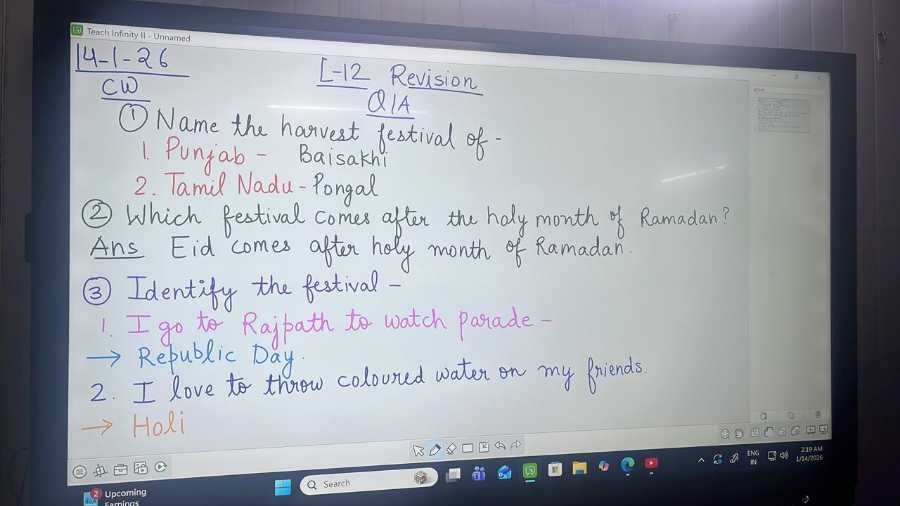 Teach Infinity II - Unnamed
14-1-26
CW
L-12 Revision
Q/A
① Name the harvest festival of -
1. Punjab - Baisakhi
2. Tamil Nadu - Pongal
② Which festival comes after the holy month of Ramadan?
Ans Eid comes after holy month of Ramadan.
③ Identify the festival -
1. I go to Rajpath to watch parade -
→ Republic Day.
2. I love to throw coloured water on my friends.
→ Holi
2 Upcoming
Earnings
Search
ENG
IN
2:19 AM
1/14/2026